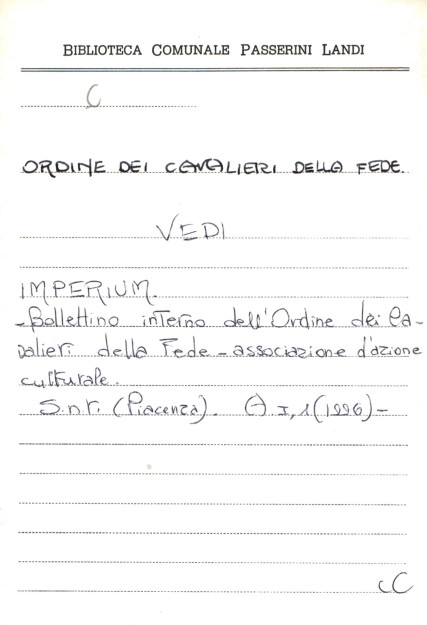 BIBLIOTECA COMUNALE PASSERINI LANDI
C
ORDINE DEI CAVALIERI DELLA FEDE.
VEDI
IMPERIUM.
-Bollettino interno dell'Ordine dei Ca-
valieri della Fede - associazione d'azione
culturale.
S.n.t. (Piacenza). A I, 1 (1996) -
cC